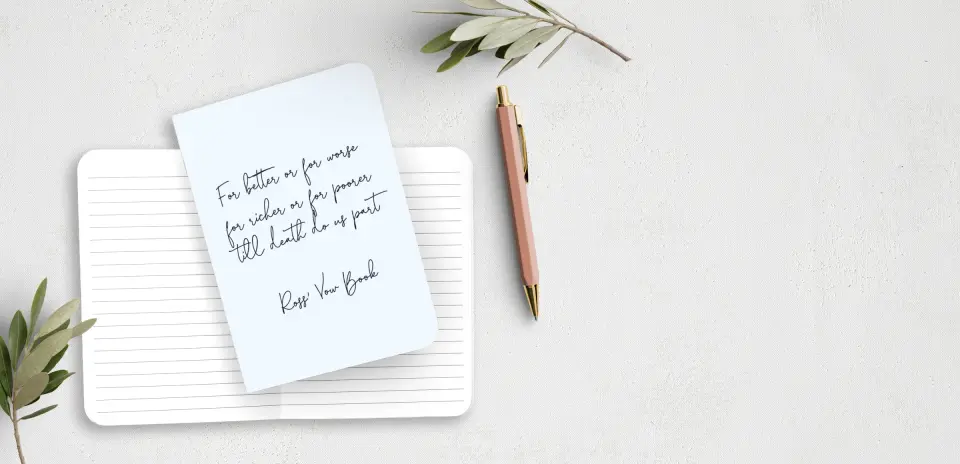 For better or for worse
for richer or for poorer
till death do us part
Ross' Vow Book